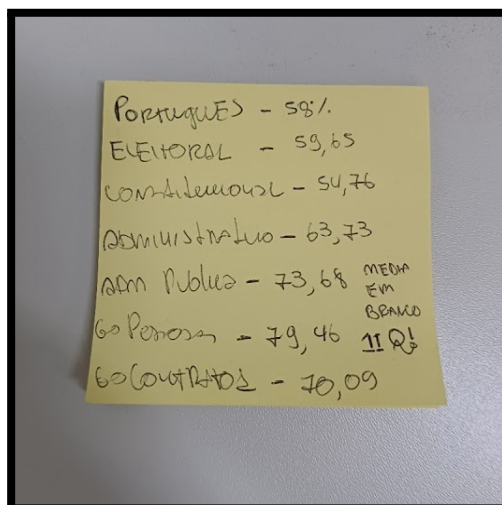 PORTUGUES - 58%
ELEITORAL - 59,65
CONSTITUCIONAL - 54,76
ADMINISTRATIVO - 63,73
ADM PUBLICA - 73,68
GO PESSOAS - 79,46
GO CONTRATOS - 70,09
MEDIA
EM
BRANCO
11 Q!